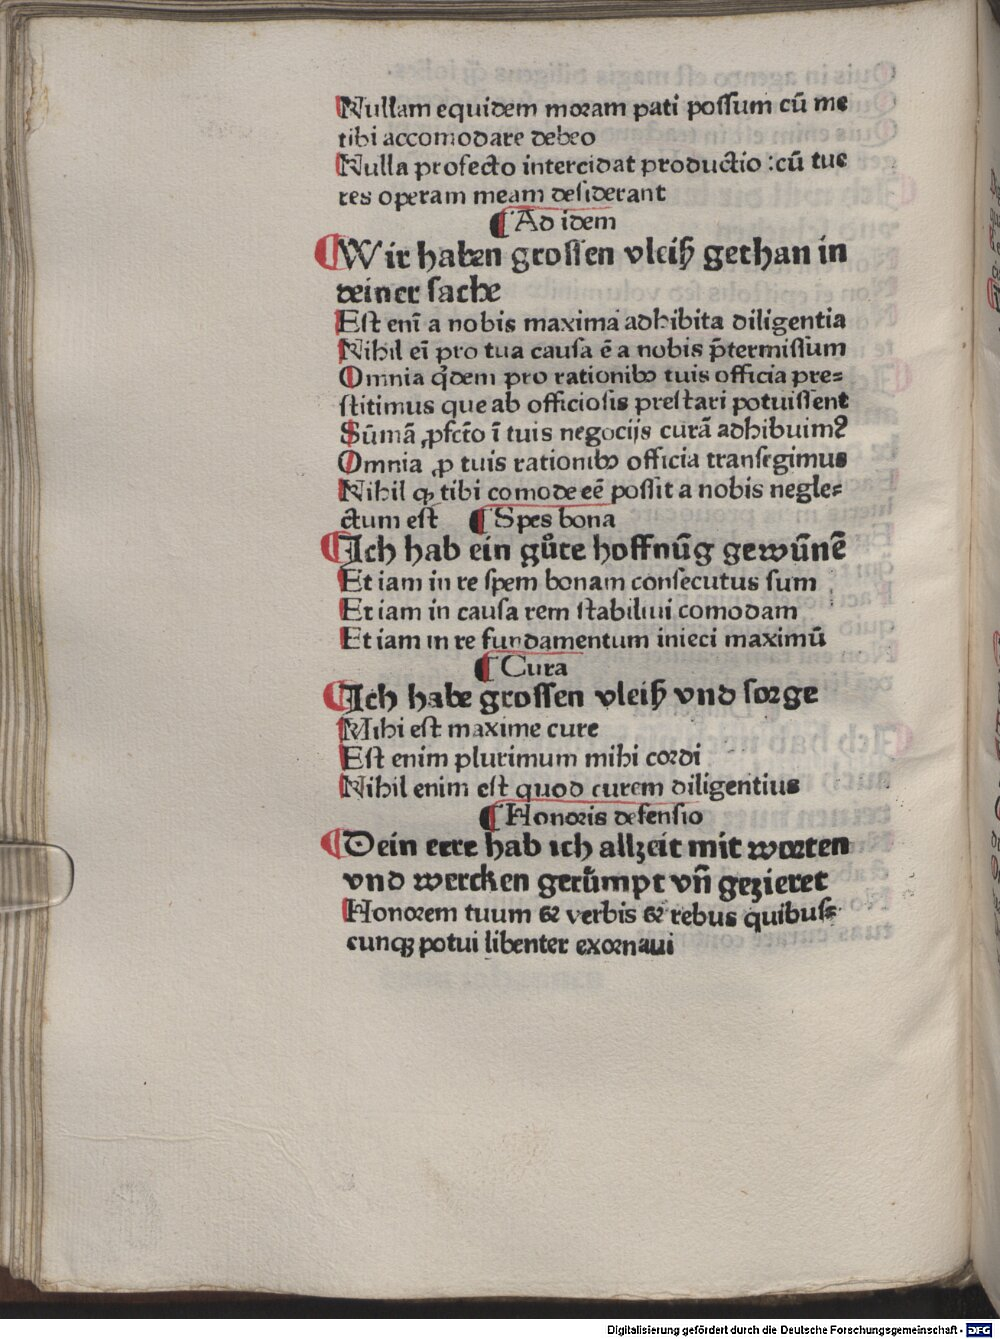 Nullam equidem moram pati possum cū me
tibi accomodare debeo
Nulla profecto intercidat productio : cū tue
res operam meam desiderant
¶ Ad idem
¶ Wir haben grossen vleiß gethan in
deiner sache
Est enī a nobis maxima adhibita diligentia
Nihil eī pro tua causa ē a nobis p̄termissum
Omnia qͥdem pro rationibꝰ tuis officia pre⸗
stitimus que ab officiosis prestari potuissent
Sūmā ꝓfcō ī tuis negocijs curā adhibuimꝰ
Omnia ꝓ tuis rationibꝰ officia transegimus
Nihil ꝙ tibi comode eē possit a nobis negle⸗
ctum est ¶ Spes bona
¶ Ich hab ein gůte hoffnūg gewūnē
Et iam in re spem bonam consecutus sum
Et iam in causa rem stabiliui comodam
Et iam in re fundamentum inieci maximū
¶ Cura
¶ Ich habe grossen vleiß vnd sorge
Mihi est maxime cure
Est enim plurimum mihi cordi
Nihil enim est quod curem diligentius
¶ Honoris defensio
¶ Dein eere hab ich allzeit mit worten
vnd wercken gerůmpt vn̄ gezieret
Honorem tuum & verbis & rebus quibus⸗
cunqꝫ potui libenter exornaui
Digitalisierung gefördert durch die Deutsche Forschungsgemeinschaft - DFG